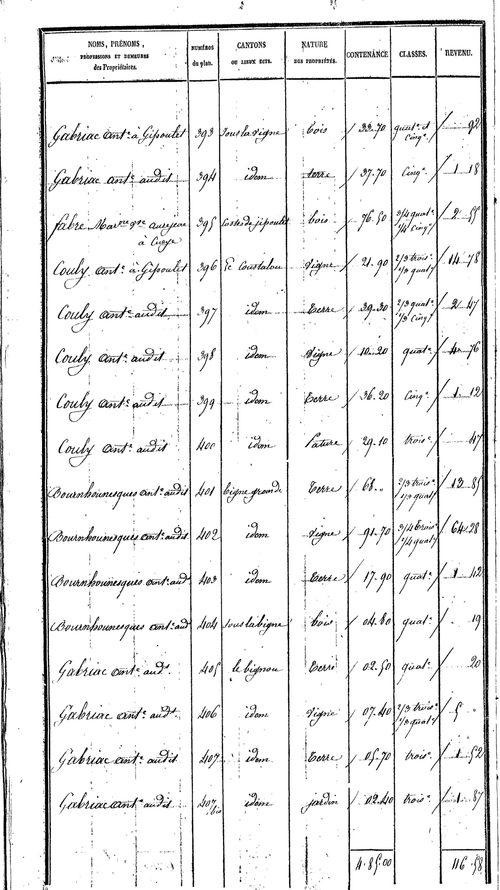 NOMS, PRÉNOMS, PROFESSIONS ET DEMEURES des Propriétaires. NUMÉROS du plan. CANTONS OU LIEUX DITS. NATURE DES PROPRIÉTÉS. CONTENANCE CLASSES. REVENU.
Gabriac antne à Gipoulet 393 sous la vigne bois 33.70 quatre et cinqe 92
Gabriac antne audit 394 idem terre 37.70 cinqe 1 18
fabre 395 Costes de jipoulet bois 76.50 3/4 quate 1/4 cinqe 2 55
à Cueye
Couly antne à Gipoulet 396 Le Coustalou vigne 21.90 2/3 trois 1/3 quate 14 78
Couly antne audit 397 idem Terre 39.30 2/3 quate 1/3 cinqe 2 47
Couly antne audit 398 idem vigne 10.20 quate 4 76
Couly antne audit 399 idem Terre 36.20 cinqe 1 12
Couly antne audit 400 idem Pature 29.10 troise 47
Bournhounesques antne audit 401 bigne grande Terre 68 2/3 troise 1/3 quate 12 85
Bournhounesques antne audit 402 idem vigne 91.70 3/4 troise 1/4 quate 64 28
Bournhounesques antne aud 403 idem Terre 17.90 quate 1 42
Bournhounesques antne aud 404 sous la bigne bois 04.80 quate 19
Gabriac antne audt 405 le bignou Terre 02.50 quate 20
Gabriac antne audt 406 idem vigne 07.40 2/3 troise 1/3 quate 5 "
Gabriac antne audit 407 idem Terre 05.70 troise 1 52
Gabriac antne audit 407 bis idem jardin 02.40 troise 1 87
4.85.00 116.58